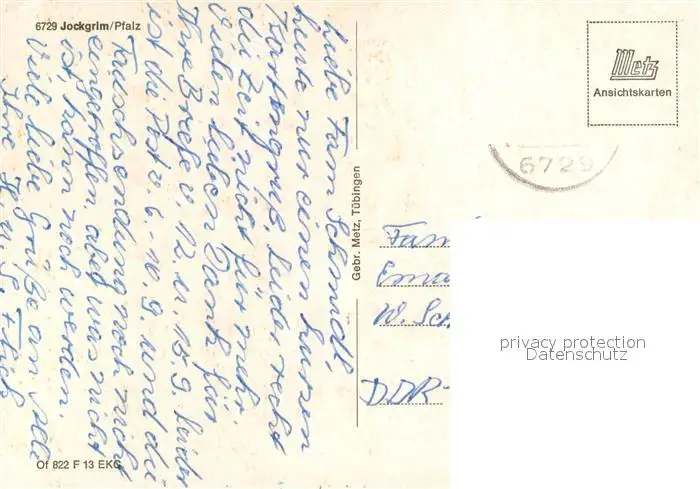 6729 Jockgrim/Pfalz
Liebe Fam. Schmidt,
heute nur einen kurzen
Kartengruß, leider reicht
die Zeit nicht für mehr.
Vielen lieben Dank für
Ihre Briefe v. 12. u. 15.9. Leider
ist die Post v. 6. 10. 9. und die
Tauschsendung noch nicht
eingetroffen aber was nicht
ist, kann noch werden.
Viele liebe Grüße an Alle
Ihre H. u. S.
Of 822 F 13 EKC
Gebr. Metz, Tübingen
Metz
Ansichtskarten
6729
Fam
Ema
W. Sch
DDR-
privacy protection
Datenschutz